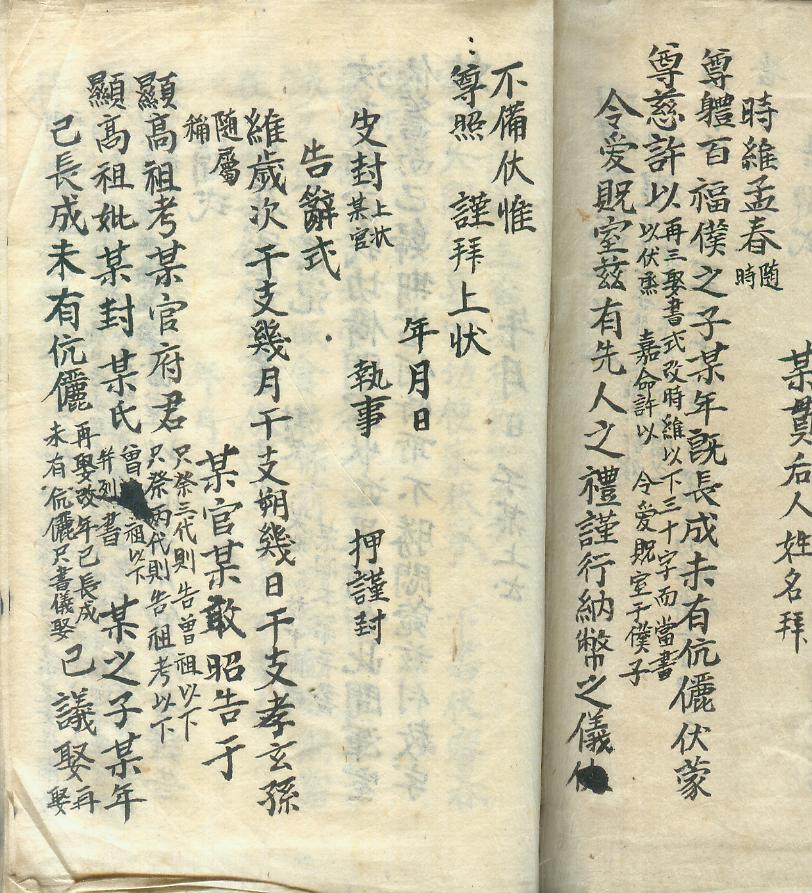 某貫后人姓名拜
時維孟春 隨時
尊體百福僕之子某年旣長成未有伉儷伏蒙
尊慈許以 再三娶書式改時維以下三十字而當書 以伏 嘉命許以 令愛貺室于僕子
令愛貺室茲有先人之禮謹行納幣之儀
不備伏惟
尊照 謹拜上狀
年月日
皮封 上狀 某官 執事 押謹封
告辭式
維歲次干支幾月干支朔幾日干支孝玄孫
隨屬稱 某官某敢昭告于
顯高祖考某官府君 只祭三代則告曾祖以下 只祭兩代則告祖考以下
顯高祖妣某封某氏 曾祖以下 並列書 某之子某年
已長成未有伉儷 再娶改年已長成 未有伉儷只書儀娶 已議娶 再娶